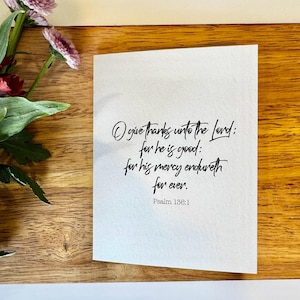 O give thanks unto the Lord;
for he is good:
for his mercy endureth
for ever.
Psalm 136:1